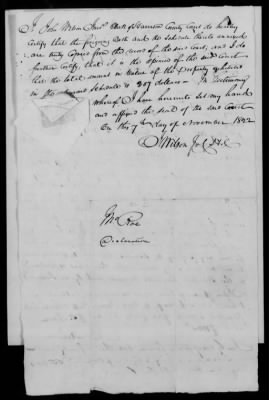 I John Wilson Junr. Clerk of Harrison County Court do hereby
Certify that the foregoing Oath and the Schedule thereto annexed
are truly Copied from the record of the said Court, and I do
further Certify, that it is the opinion of the said Court
that the total amount in Value of the property exhibited
in the Schedule is dollars. In Testimony
whereof I have hereunto set my hand
and affixed the seal of the said Court
On this 7th day of November 1822
J Wilson Jr
Declaration